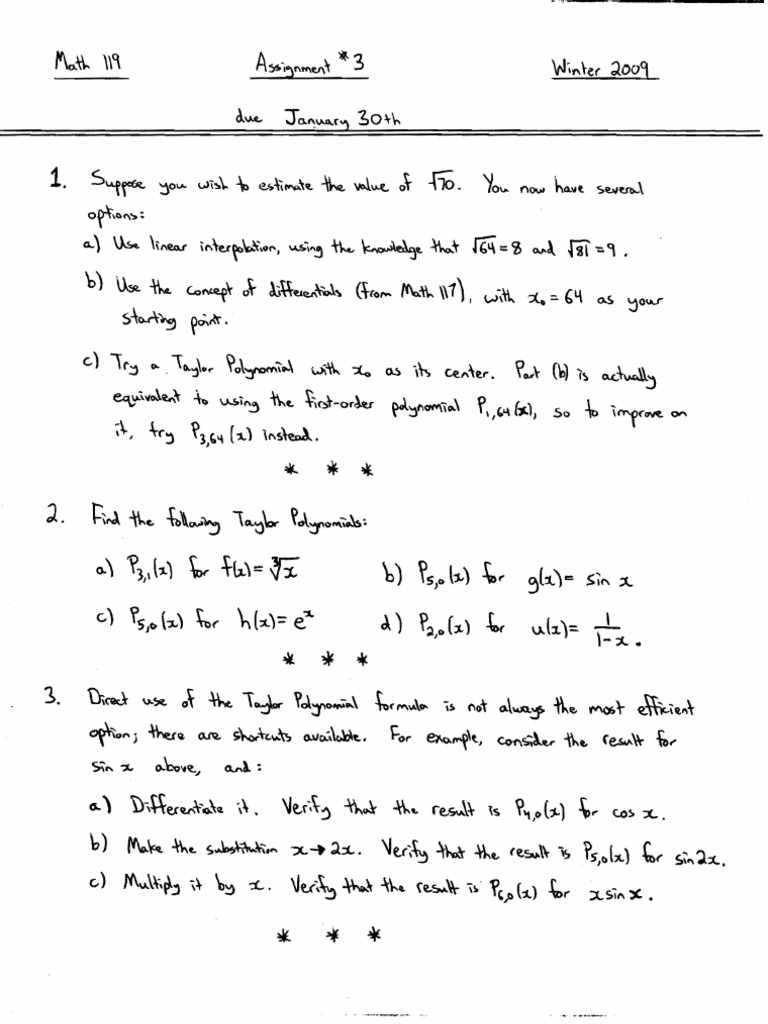 Math 119 Assignment #3 Winter 2009
due January 30th
1. Suppose you wish to estimate the value of √70. You now have several
options:
a) Use linear interpolation, using the knowledge that √64 = 8 and √81 = 9.
b) Use the concept of differentials (from Math 117), with x₀ = 64 as your
starting point.
c) Try a Taylor Polynomial with x₀ as its center. Part (b) is actually
equivalent to using the first-order polynomial P₁,₆₄(x), so to improve on
it, try P₃,₆₄(x) instead.
* * *
2. Find the following Taylor Polynomials:
a) P₃,₁(x) for f(x) = ∛x b) P₅,₀(x) for g(x) = sin x
c) P₅,₀(x) for h(x) = eˣ d) P₂,₀(x) for u(x) = 1/(1-x).
* * *
3. Direct use of the Taylor Polynomial formula is not always the most efficient
option; there are shortcuts available. For example, consider the result for
sin x above, and:
a) Differentiate it. Verify that the result is P₄,₀(x) for cos x.
b) Make the substitution x → 2x. Verify that the result is P₅,₀(x) for sin 2x.
c) Multiply it by x. Verify that the result is P₆,₀(x) for x sin x.
* * *